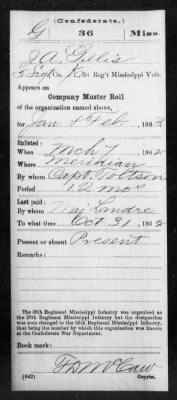 (Confederate.)
G 36 Miss.
J. A. Gillis
Co. K, 36 Reg't Mississippi Vols.
Appears on
Company Muster Roll
of the organization named above,
for Jan & Feb, 1863
Enlisted:
When Mch 7, 1862
Where Meridian
By whom Capt.
Period 12 mos
Last paid:
By whom Maj Landre
To what time Oct 31, 1862
Present or absent Present
Remarks:
The 36th Regiment Mississippi Infantry was organized as
the 25th Regiment Mississippi Infantry but the designation
was soon changed to the 36th Regiment Mississippi Infantry,
that being the number by which this organization was known
at the Confederate War Department.
Book mark:
McCaw
(642) Copyist.